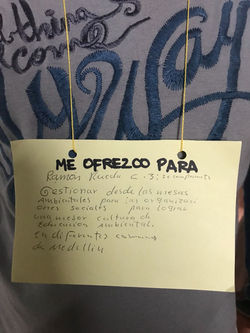 thing
come
way
ME OFREZCO PARA
Ramon Rueda C. 3;
Gestionar desde las mesas
Ambientales para las organizaci
ones sociales para lograr
una mejor cultura de
Educacion Ambiental.
en diferentes comunas
de Medellin